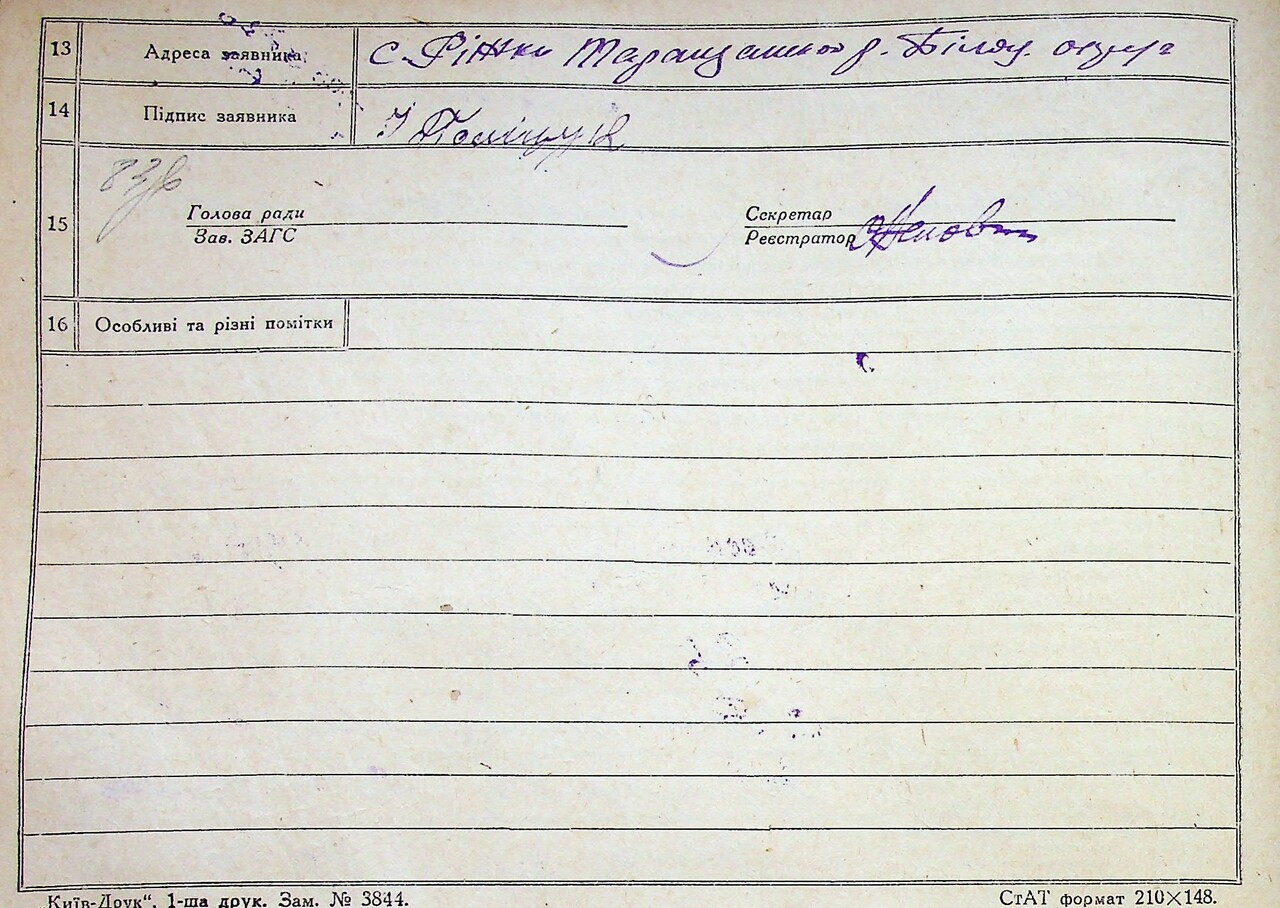 13 Адреса заявника с. Ріжки Таращанського р. Білоц. округа
14 Підпис заявника І Поліщук
15 Голова ради Секретар
Зав. ЗАГС Реєстратор
16 Особливі та різні помітки
Київ-Друк“, 1-ша друк. Зам. № 3844. СтАТ формат 210×148.